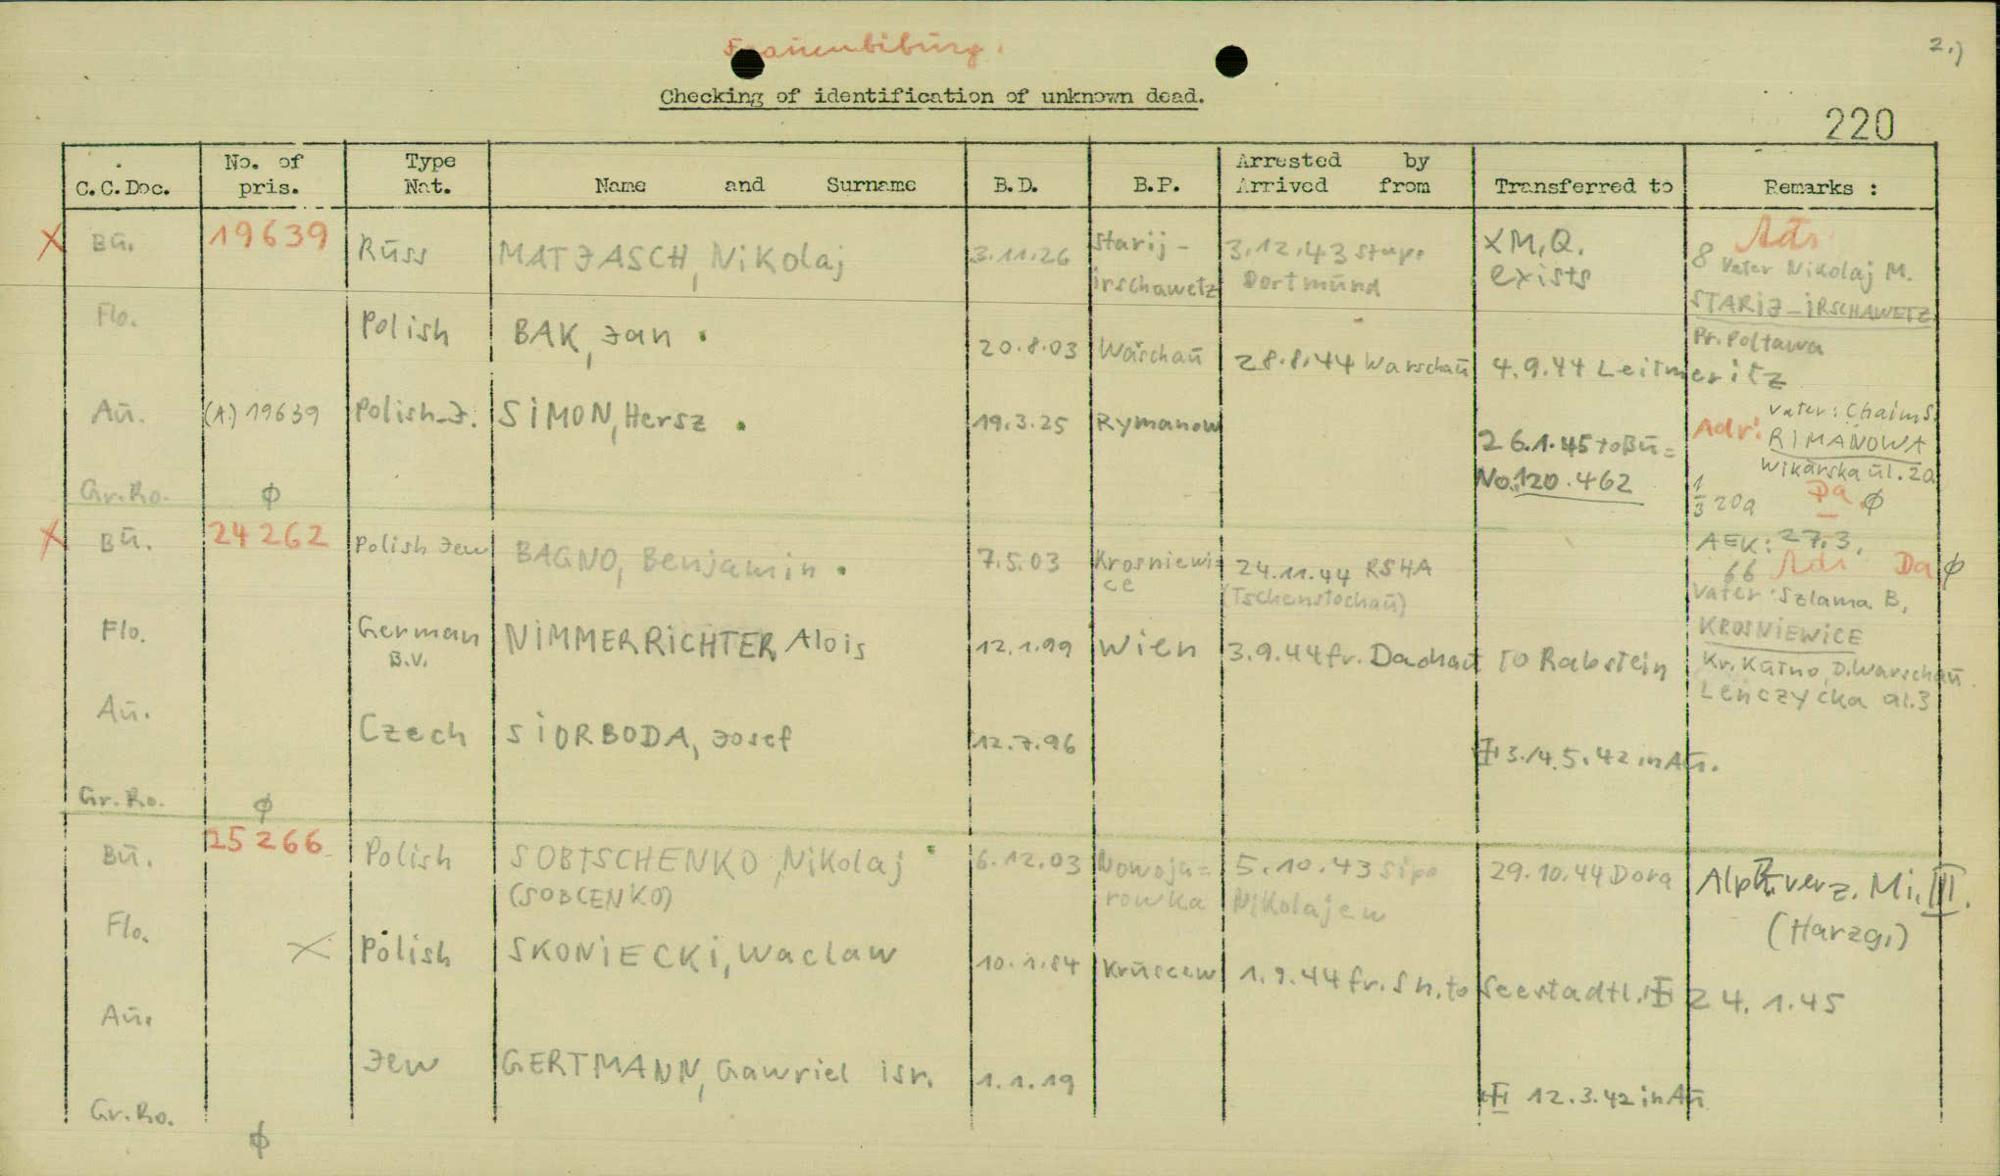 Frauenbiburg.
2.)
Checking of identification of unknown dead.
220
C.C.Doc. No. of pris. Type Nat. Name and Surname B.D. B.P. Arrested by Arrived from Transferred to Remarks :
X Bū. 19639 Rūss MATJASCH, Nikolaj 3.11.26 Starij- irschawetz 3.12.43 Stapo Dortmūnd XM,Q. exists Adr 8 Vater Nikolaj M.
STARIJ-IRSCHAWETZ
Pr. Poltawa
Flo. Polish BAK, Jan . 20.8.03 Warschaū 28.8.44 Warschaū 4.9.44 Leitmeritz
Aū. (A.) 19639 Polish-J. SIMON, Hersz . 19.3.25 Rymanow 26.1.45 to Bū= No. 120.462 Adr: Vater: Chaim S.
RIMANOWA
Wikarska ūl. 20
Gr.Ro. ϕ 1/3 209 Da ϕ
X Bū. 24262 Polish Jew BAGNO, Benjamin . 7.5.03 Krosniewi= ce 24.11.44 RSHA (Tschenstochaū) AEK: 27.3.
66 Adr Da ϕ
Vater Szlama B,
KROSNIEWICE
Kr. Kūtno, D. Warschaū
Lenczycka al.3
Flo. German B.V. NIMMERRICHTER Alois 12.1.99 Wien 3.9.44 fr. Dachaū to Rabstein
Aū. Czech SIORBODA, Josef 12.7.96 3./4.5.42 in Aū.
Gr.Ro. ϕ
Bū. 25266 Polish SOBTSCHENKO, Nikolaj (SOBCENKO) 6.12.03 Nowoju= rowka 5.10.43 Sipo Nikolajew 29.10.44 Dora Alph. verz. Mi. III.
(Harzg.)
Flo. X Polish SKONIECKI, Waclaw 10.1.84 Krūscew 1.9.44 fr. Sh. to Seestadtl. 24.1.45
Aū. Jew GERTMANN, Gawriel isr. 1.1.19 12.3.42 in Aū
Gr.Ro. ϕ